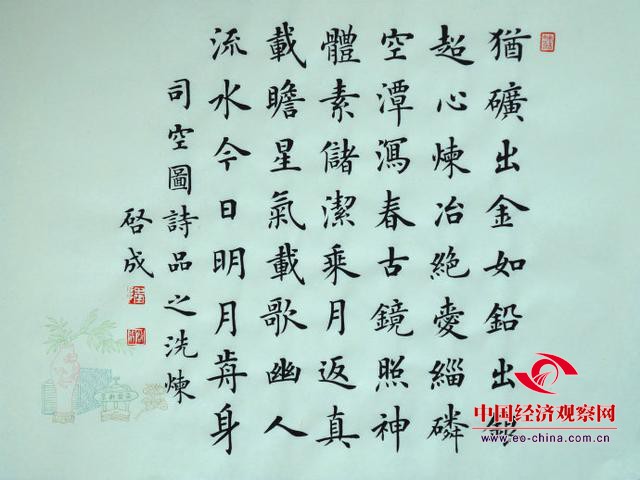 猶礦出金如鉛出銀
超心煉冶絶愛緇磷
空潭瀉春古鏡照神
體素儲潔乘月返真
載瞻星氣載歌幽人
流水今日明月歬身
司空圖詩品之洗煉
啓成
中国经济观察网
www.eo-china.com.cn